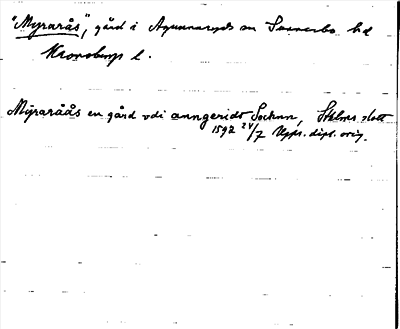 "Myrarås", gård i Agunnaryds sn Sunnerbo hd
Kronobergs l.
Myraråås en gård vdi anngeridt Sochnn, Sthlms slott
1592 24/7 Uppr. dipl. orig.